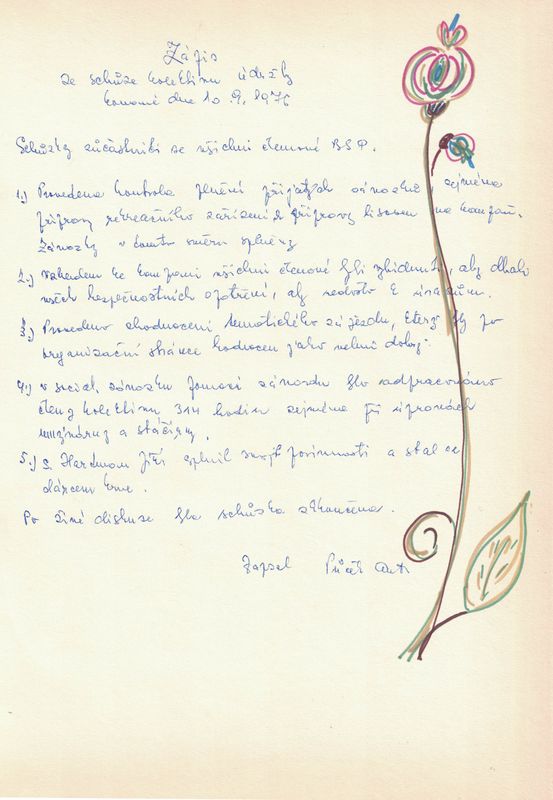 Zápis
ze schůze kolektivu údržby
konané dne 10.9.1976
Schůzky zúčastnili se všichni členové BSP.
1.) Provedena kontrola plnění přijatých závazků, zejména
přípravy rekreačního zařízení a přípravy lisoven na kampaň.
Závazky v tomto směru splněny
2.) vzhledem ke kampani všichni členové byli vyzváni, aby dbali
všech bezpečnostních opatření, aby nedošlo k úrazům.
3.) Provedeno zhodnocení tématického zájezdu, který byl po
organizační stránce hodnocen jako velmi dobrý.
4.) v social. závazku pomoci závodu bylo odpracováno
členy kolektivu 314 hodin zejména při úpravách
a stáčírny.
5.) s. Jiří splnil svoji povinnost a stal se
dárcem krve.
Po živé diskuze byla schůzka zakončena.
Zapsal